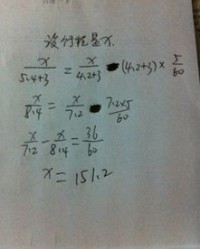 设行程是x.
x/(5.4+3) = x/(4.2+3) - (4.2+3)× 5/60
x/8.4 = x/7.2 - 7.2×5/60
x/7.2 - x/8.4 = 36/60
x = 151.2